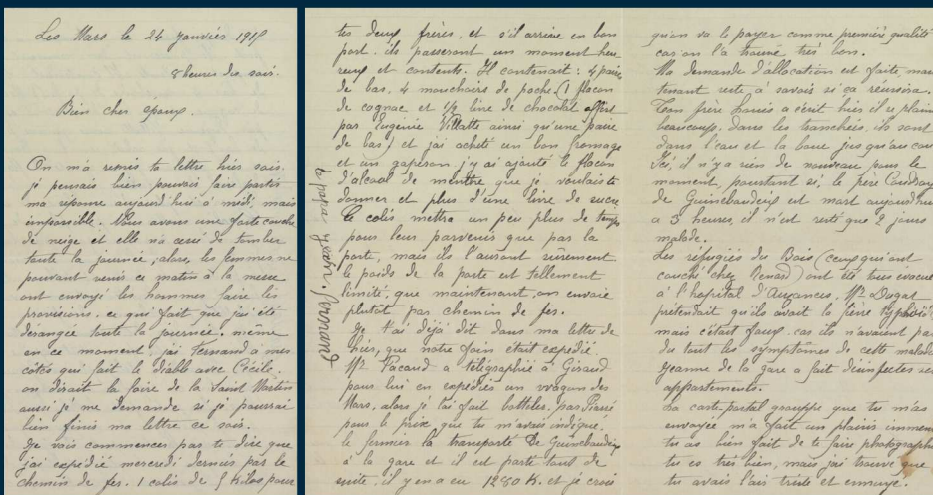 Les Mars le 24 janvier 1915
8 heures du soir.
Bien cher époux.
On m'a remis ta lettre hier soir.
je pensais bien pouvoir faire partir
ma reponse aujourd'hui à midi, mais
impossible. Nous avons une forte couche
de neige et elle n'a cessé de tomber
toute la journée, alors, les femmes ne
pouvant venir ce matin à la messe
ont envoyé les hommes faire les
provisions. ce qui fait que j'ai été
dérangée toute la journée, même
en ce moment, j'ai Fernand à mes
côtés qui fait le diable avec Cécile.
on dirait la foire de la Saint Martin
aussi je me demande si je pourrai
bien finir ma lettre ce soir.
Je vais commencer par te dire que
j'ai expédié mercredi dernier par le
chemin de fer. 1 colis de 5 kilos pour
tes deux frères, et s'il arrive en bon
port. ils passeront un moment heu
reux et contents. Il contenait : 4 paires
de bas, 4 mouchoirs de poche (1 flacon
de cognac et 1/2 livre de chocolat offert
par Eugénie Villatte ainsi qu'une paire
de bas) et j'ai acheté un bon fromage
et un gaperon j'y ai ajouté le flacon
d'alcool de menthe que je voulais te
donner et plus d'une livre de sucre.
Ce colis mettra un peu plus de temps
pour leur parvenir que par la
poste, mais ils l'auront surement
le poids de la poste est tellement
limité, que maintenant, on envoie
plutot par chemin de fer.
Je t'ai déjà dit dans ma lettre de
hier, que notre foin était expédié.
Mr Pacaud a télégraphié à Giraud
pour lui en expédier un wagon des
Mars, alors je l'ai fait botteler, par
pour le prix que tu m'avais indiqué.
le fermier la transporté De Guinebaudeix
à la gare et il est parti tout de
suite, il y en a eu 1280 K. et je crois
papa Fernand
qu'on va le payer comme première qualité
car on l'a trouvé très bon.
Ma demande d'allocation est faite main
tenant reste à savoir si ça réussira.
Ton frère Louis a écrit hier il se plaint
beaucoup, dans les tranchées, ils sont
dans l'eau et la boue jusqu'au cou
Ici, il n'y a rien de nouveau pour le
moment, pourtant si, le père Coudray
de Guinebaudeix est mort aujourd'hui
a 3 heures, il n'est resté que 2 jours
malade.
Les réfugiés du Bois (ceux qui ont
couché chez Renard) ont été tous évacués
à l'hopital d'Auzances. Mr Dugat
prétendait qu'ils avait la fièvre typhoïde
mais c'était faux. car ils n'avaient pas
du tout les symptômes de cette maladie
Jeanne de la gare a fait desinfecter ses
appartements.
La carte-postal grouppe que tu m'as
envoyée m'a fait un plaisir immense
tu as bien fait de te faire photographier
tu es très bien, mais j'ai trouvé que
tu avais l'air triste et ennuyé.